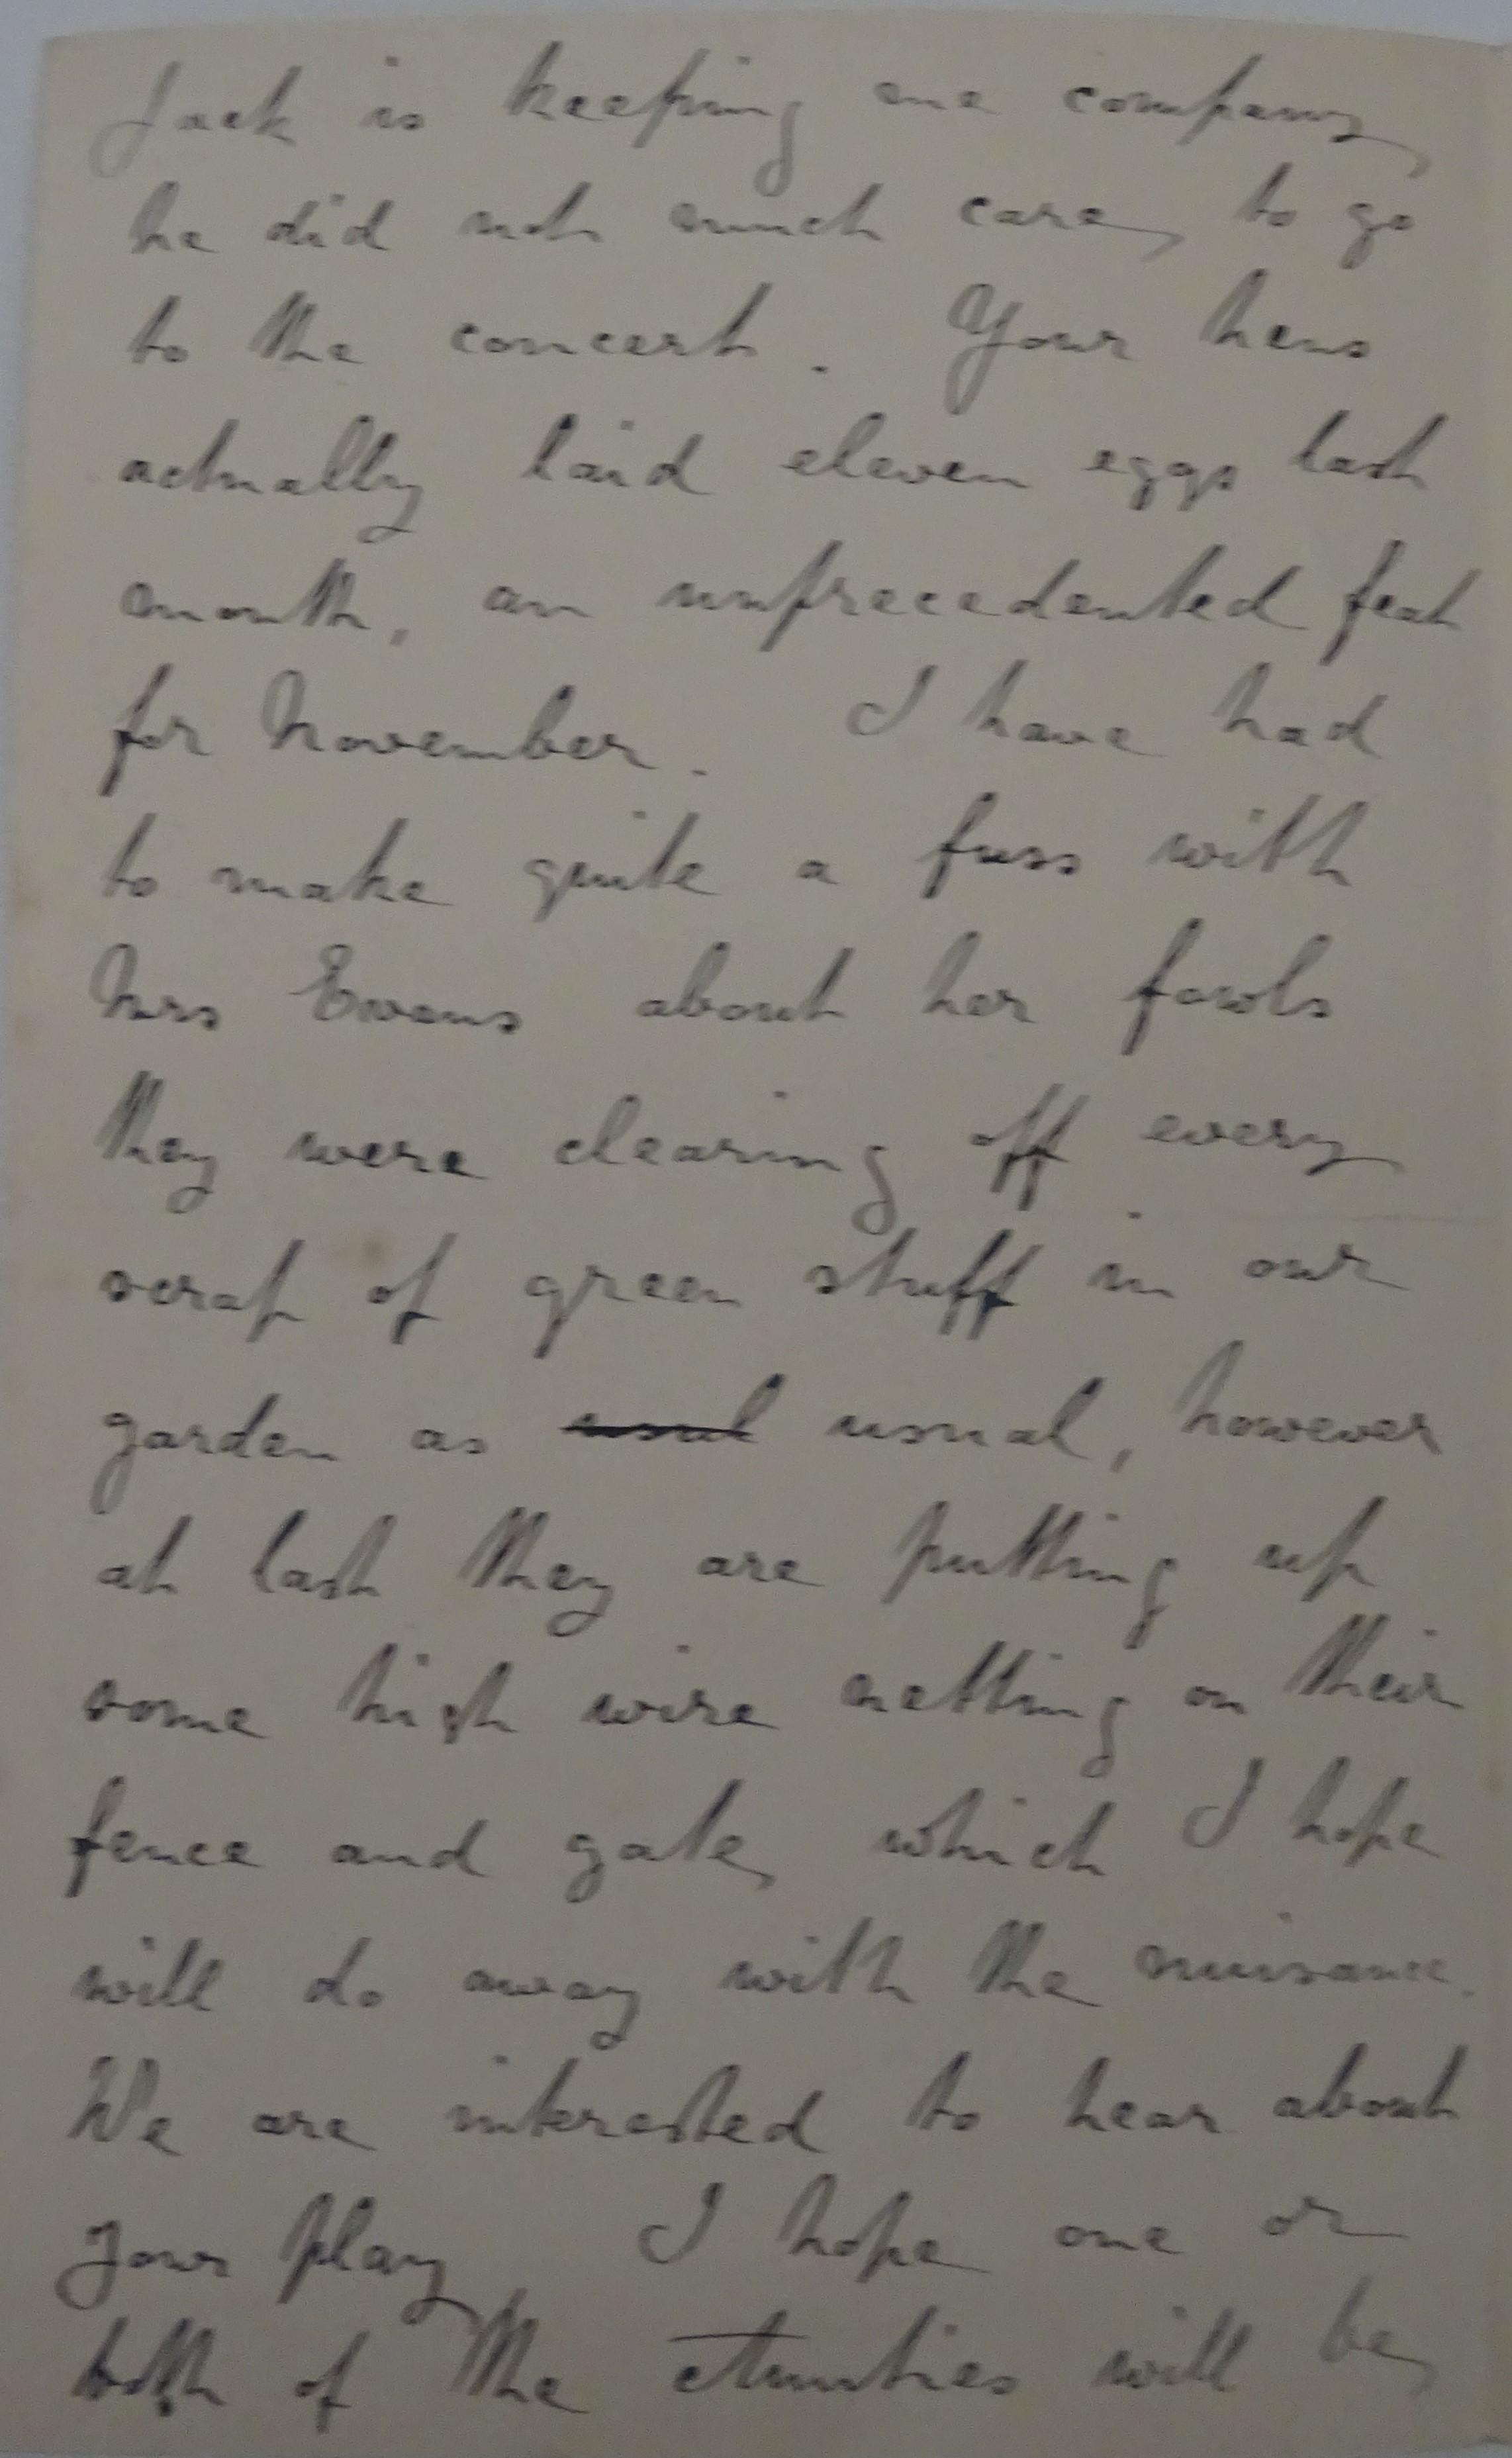 Jack is keeping me company,
he did not much care, to go
to the concert. Your hens
actually laid eleven eggs last
month, an unprecedented feat
for November. I have had
to make quite a fuss with
Mrs Evans about her fowls
they were clearing off every
scrap of green stuff in our
garden as usul usual, however
at last they are putting up
some high wire netting on their
fence and gate, which I hope
will do away with the nuisance.
We are interested to hear about
your play I hope one or
both of the Aunties will be,